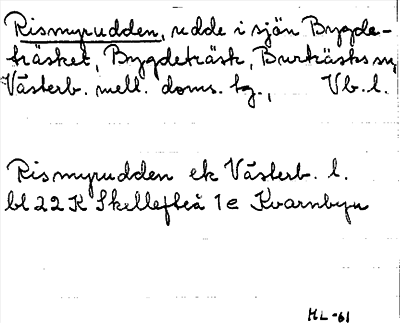 Rismyrudden, udde i sjön Bygde-
träsket, Bygdeträsk, Burträsks sn,
Västerb. mell. doms. tg., Vb. l.
Rismyrudden ek Västerb. l.
bl 22 K Skellefteå 1e Kvarnbyn
HL-61